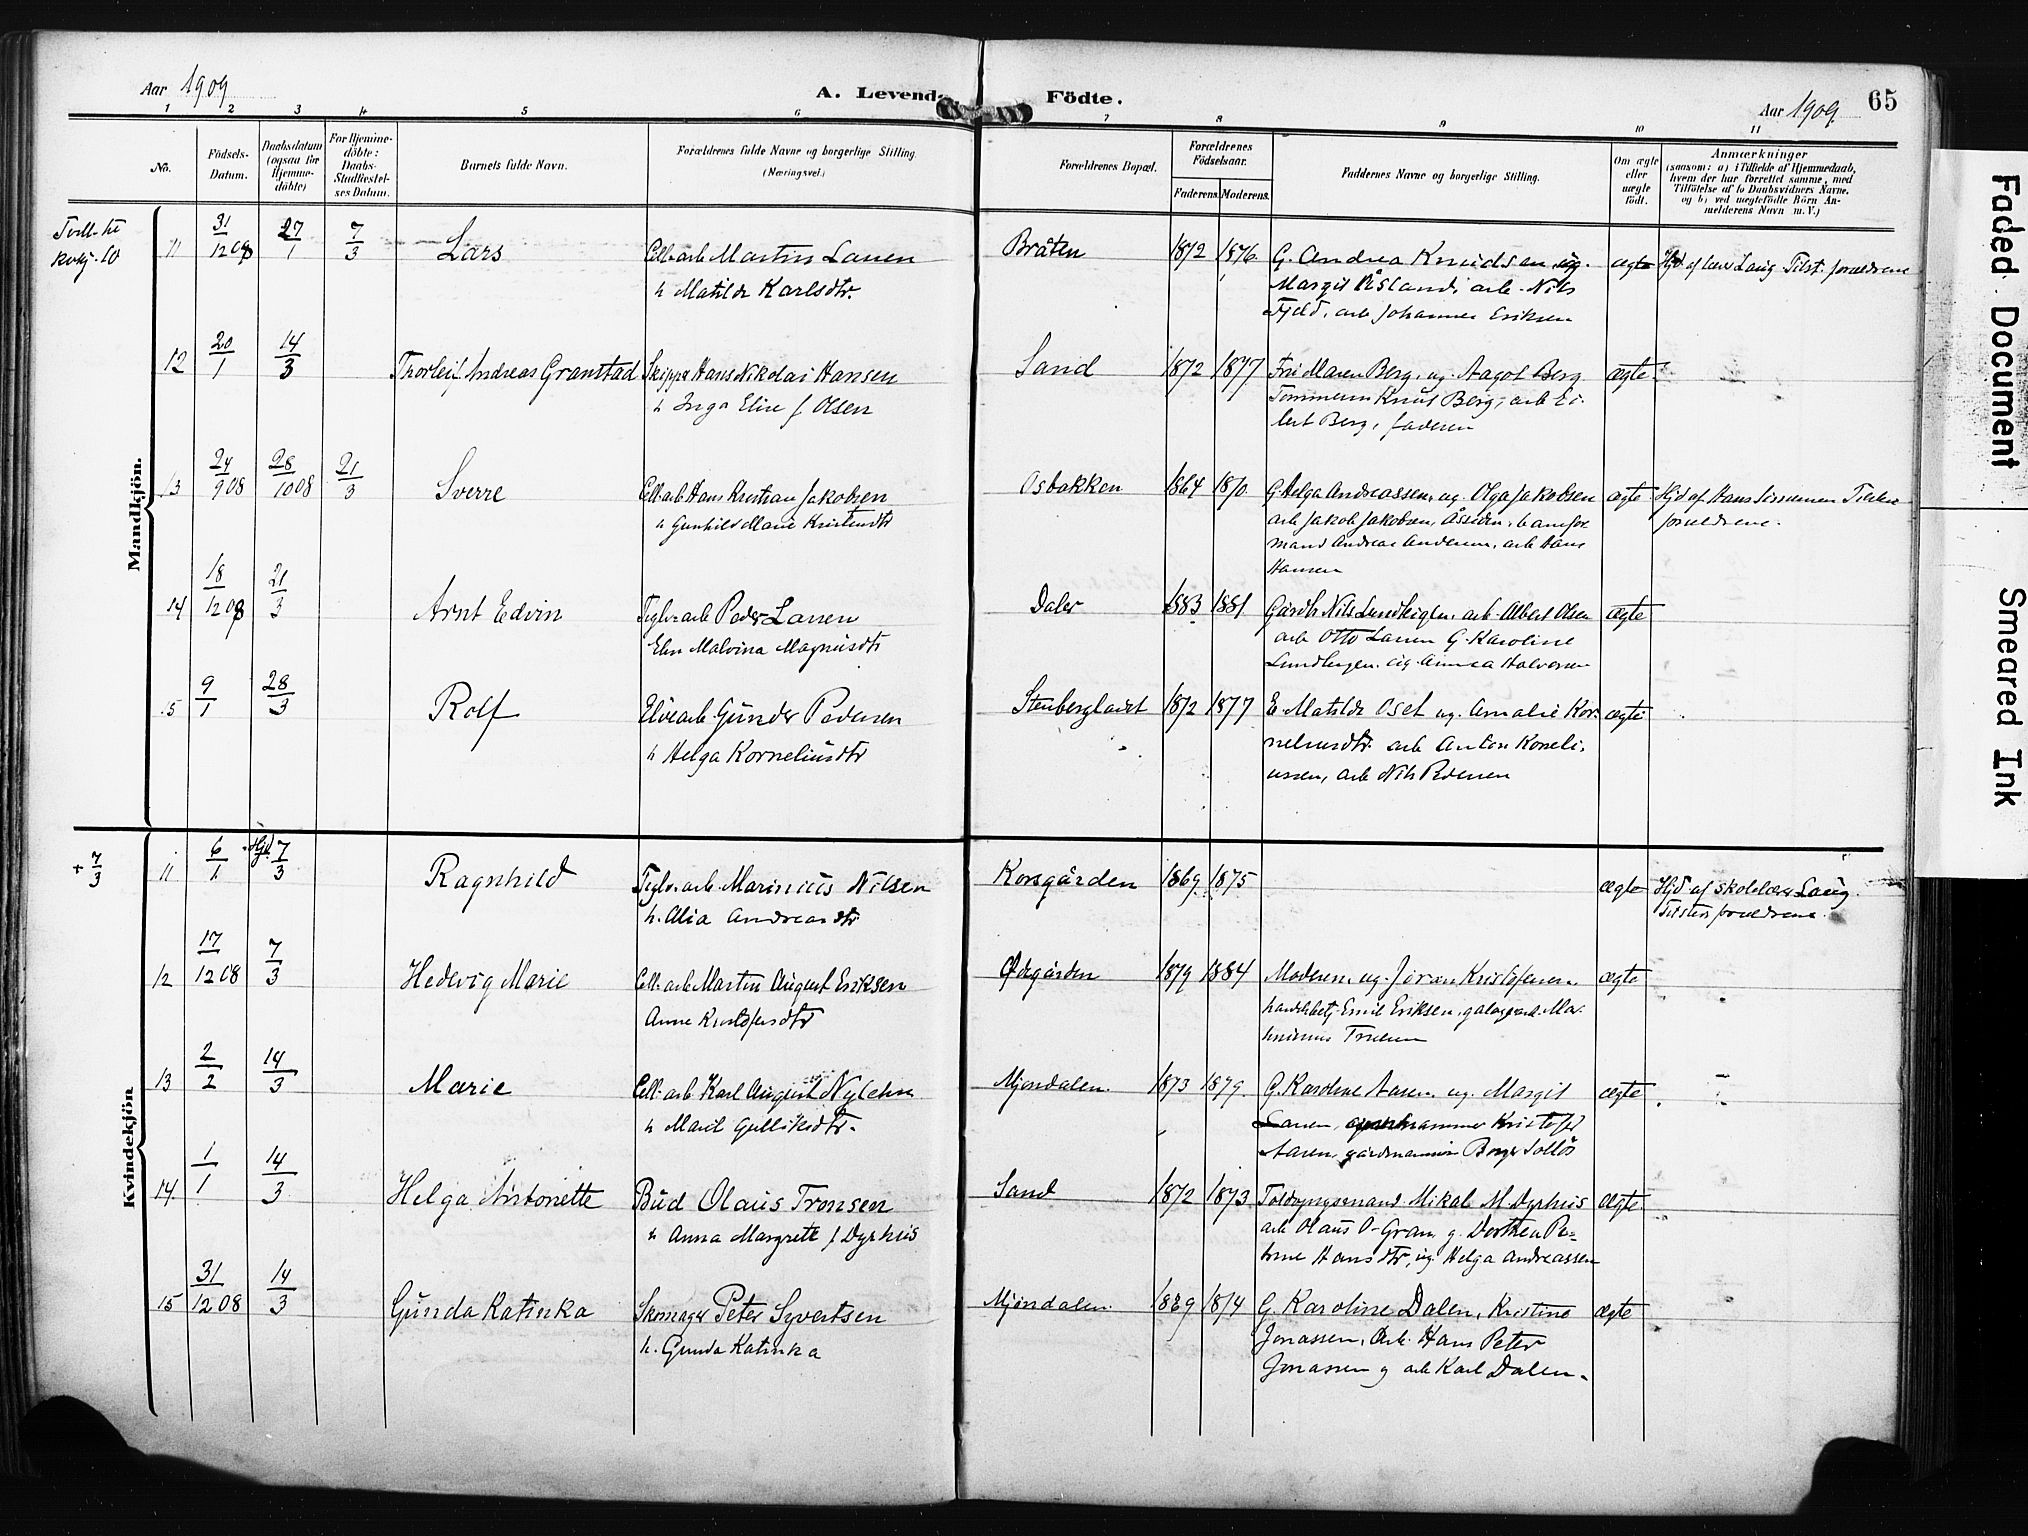 Aar 1909
A. Levende Födte.
Aar 1909
65
1 2 3 4 5 6 7 8 9 10 11
No.
Födsels-
Datum.
Daabsdatum
(ogsaa for
Hjemme-
döbte)
For Hjemme-
döbte:
Daabs-
Stadfæstel-
ses Datum.
Barnets fulde Navn.
Forældrenes fulde Navne og borgerlige Stilling.
(Næringsvei.)
Forældrenes Bopæl.
Forældrenes
Födselsaar.
Faderens. Moderens.
Faddernes Navne og borgerlige Stilling.
Om ægte
eller
uægte
födt.
Anmærkninger
(saasom: a) i Tilfælde af Hjemmedaab,
hvem der har forrettet samme, med
Tilföielse af to Daabsvidners Navne,
og b) ved uægtefödte Börn An-
melderens Navn m. V.)
Mandkjön.
11 31/12 08 27/1 7/3 Lars
Cell.arb. Martin Larsen
h. Matilde Karlsdtr.
Bråten 1872 1876
G. Andrea Knudsen, ug.
Margit Råsland, arb. Nils
Fjeld, arb. Johannes Eriksen
ægte
Hjd af lærer Laug. Tilst. forældrene
12 20/1 14/3 Thorleif Andreas Granstad
Skipper Hans Nikolai Hansen
h. Inga Elise f. Olsen
Sand 1872 1877
Fru Maren Berg, ug. Aagot Berg
Tømmerm Knut Berg, arb. Ei-
lert Berg, faderen
ægte
13 24/9 08 28/10 08 21/3 Sverre
Cell.arb. Hans Kristian Jakobsen
h. Gunhild Marie Kristensdtr
Osbakken 1864 1870
G. Helga Andreassen, ug. Olga Jakobsen
arb. Jakob Jakobsen, Åssiden, banefor
mand Andreas Andersen, arb. Hans
Hansen
ægte
Hjd af Hans
forældrene.
14 18/12 08 21/3 Arnt Edvin
Teglv.arb. Peder Larsen
Elen Malvina Magnusdtr
Daler 1883 1881
Gårdb. Nils Lundbigten, arb. Albert Olsen
arb. Otto Larsen G. Karoline
ug. Annea Halvorsen
ægte
15 9/1 28/3 Rolf
Elvearb. Gunder Pedersen
h. Helga Korneliusdtr
Stenbergladet 1872 1877
E. Matilde Oset ug. Amalie Kor-
neliusdtr. arb. Anton Korneli-
ussen, arb. Nils Pedersen
ægte
Kvindekjön
+ 7/3
11 6/1 Hjd. 7/3 Ragnhild
Teglv.arb. Marinius Nilsen
h. Alia Andreasdtr
Korsgården 1869 1875
ægte
Hjd af skolelærer Laug.
Tilsted forældrene.
12 17/12 08 7/3 Hedevig Marie
Cell.arb. Martin August Eriksen
Anne Kristofersdtr
Ødegården 1879 1884
Moderen, ug. Jøran Kristofersen.
handelsbetj. Emil Eriksen,
ægte
13 2/2 14/3 Marie
Cell.arb. Karl August Nylehn
h. Marit Gulliksdtr.
Mjøndalen. 1873 1879.
G. Karoline Aasen, ug. Margit
Larsen, Kristofer
Aasen, gårdmandss. Borger Solløs
ægte
14 1/1 14/3 Helga Antonette
Bud Olaus Tronsen
h. Anna Margrete f. Dyrhus
Sand 1872 1873
Mikal M. Dyrhus
arb. Olaus O. Gran, g. Dorthea Pe-
trine Hansdtr, ug. Helga Andreassen
ægte
15 31/12 08 14/3 Gunda Katinka
Skomager Peter Syvertsen
h. Gunda Katinka
Mjøndalen. 1869 1874
G. Karoline Dalen, Kristine
Jonassen, Arb. Hans Peter
Jonassen g arb Karl Dalen.
ægte
Faded Document
Smeared Ink